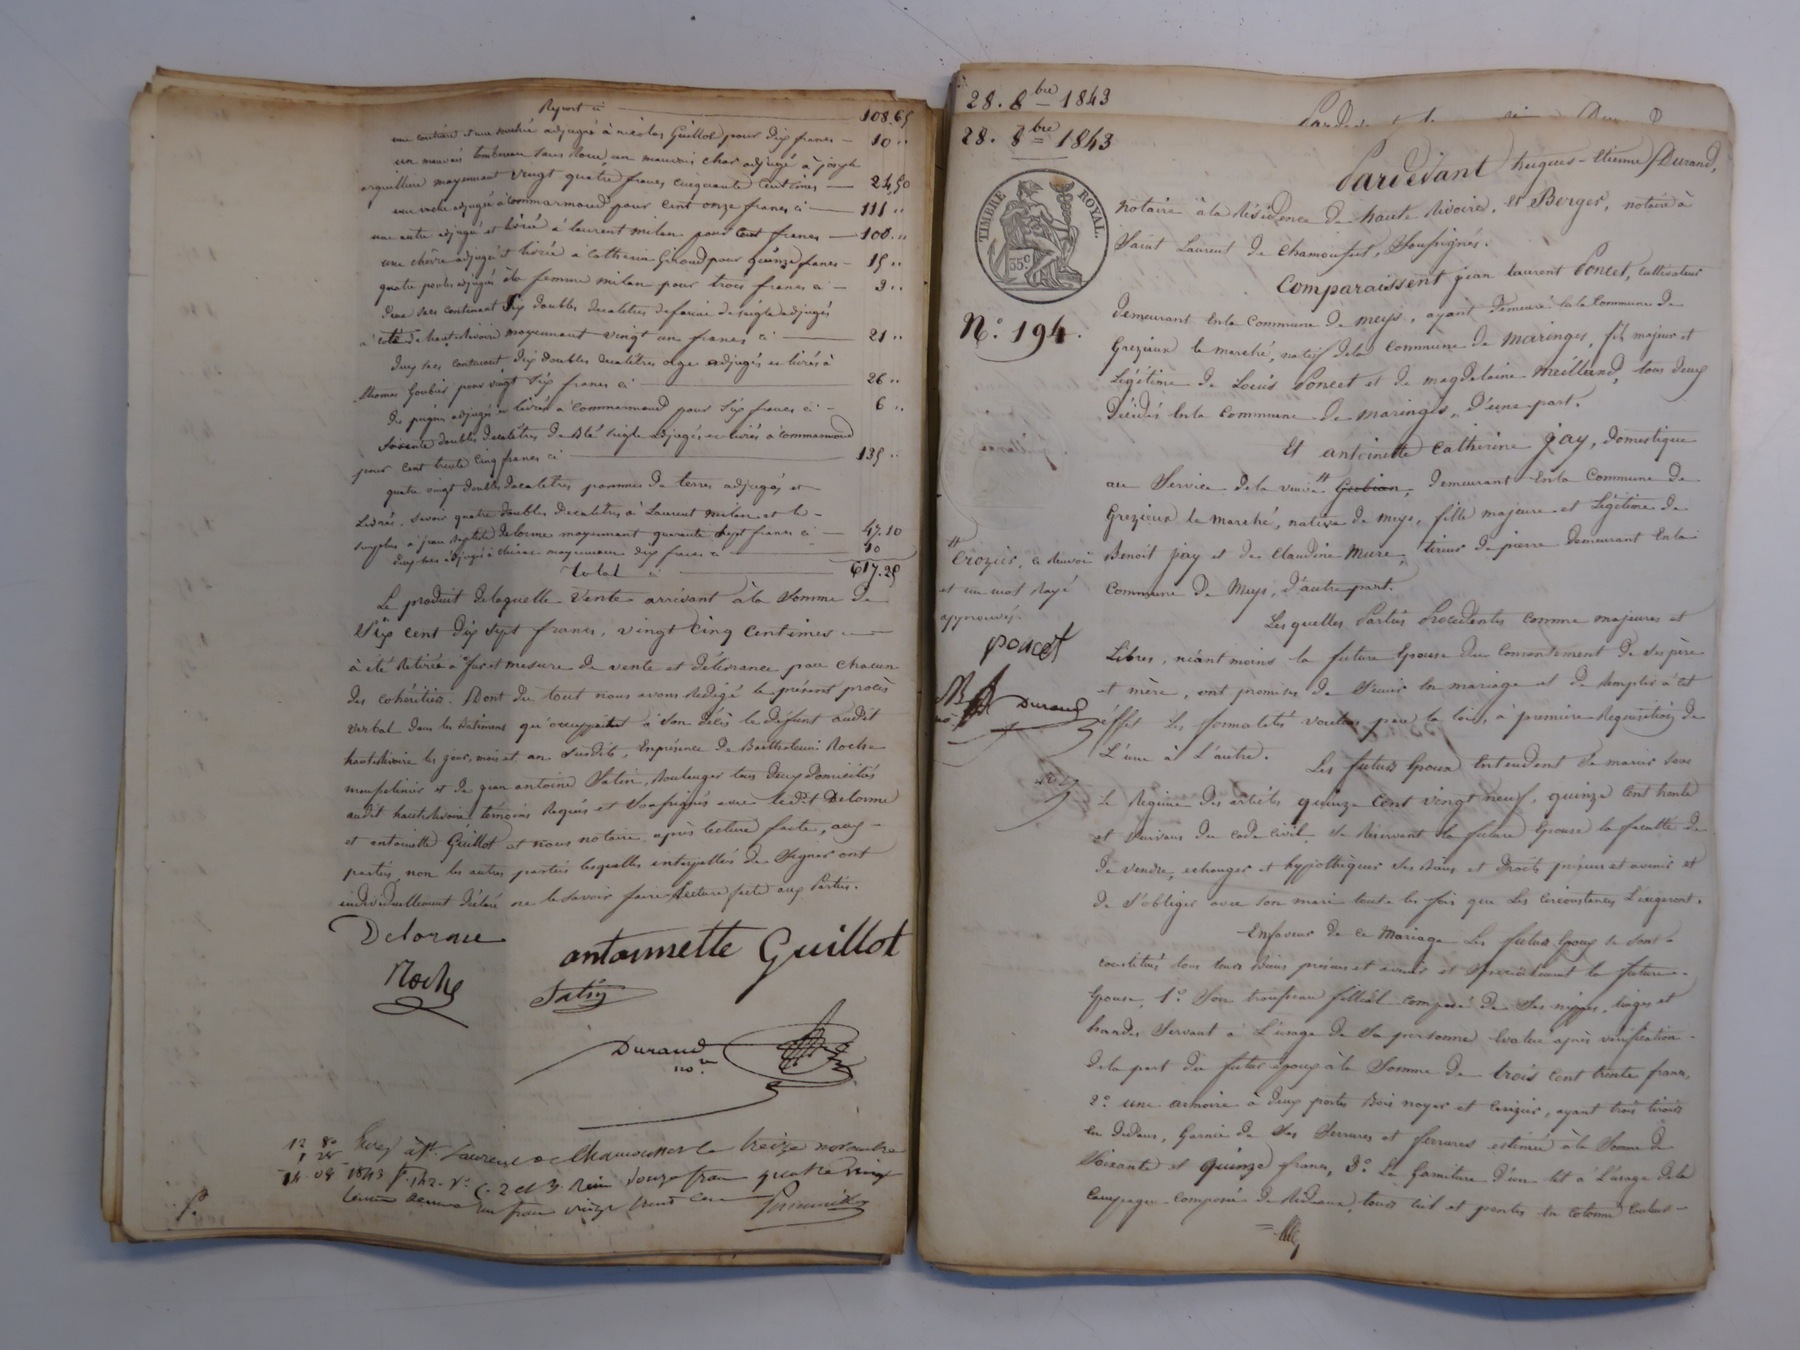 Report ci 108.65
adjugé à nicolas Guillot pour dix francs — 10 ..
un mauvais tombereau sans roue, un mauvais char adjugé à joseph
moyennant vingt quatre francs cinquante centimes — 24,50
une vache adjugée à Commarmond pour cent onze francs ci — 111 ..
une autre adjugée et livrée à laurent milan pour cent francs — 100 ..
une chèvre adjugée et livrée à Catherin Giroud pour quinze francs — 15 ..
quatre poules adjugées à la femme milan pour trois francs ci — 3 ..
deux sacs contenant dix doubles decalitres de farine de seigle adjugés
à de hauterivoire moyennant vingt un francs ci — 21 ..
deux sacs contenant dix doubles decalitres orge adjugés et livrés à
thomas Goubier pour vingt six francs ci — 26 ..
adjugés et livrés à Commarmond pour six francs ci — 6 ..
soixante doubles decalitres de blé seigle adjugés et livrés à commarmond
pour cent trente cinq francs ci — 135 ..
quatre vingt doubles decalitres pommes de terres adjugés et
Livrés, savoir quatre doubles decalitres à Laurent milan et le —
surplus à jean baptiste Delorme moyennant quarante sept francs ci — 47.10
adjugé moyennant dix francs ci — 10
total ci — 617.25
Le produit de laquelle vente arrivant à la somme de
Six cent dix sept francs, vingt cinq centimes —
à été retirée à fur et mesure de vente et délivrance par chacun
des cohéritiers. Dont du tout nous avons redigé le présent procès
verbal dans les batimens qu'occuppaitent à son décès le défunt audit
hauterivoire les jour, mois et an susdits, En présence de Barthelemi Roche
et de jean antoine Satin, boulanger tous deux domiciliés
audit hauterivoire témoins requis et soussignés avec ledit Delorme
et antoinette Guillot et nous notaire, après lecture faite, aux —
parties, non les autres parties lesquelles interpellés de signer ont
individuellement déclaré ne le savoir faire. Lecture faite aux parties.
Delorme
antoinnette Guillot
Roche
Satin
Durand
no.re
Enreg. à St. Laurent de Chamousset le treize novembre
1843 f. 142 v. C. 2 et 3. Reçu douze francs quatre vingt
un franc vingt
28. 8bre 1843
28. 8bre 1843
TIMBRE ROYAL.
35c
N.o 194.
Pardevant hugues-Etienne Durand,
notaire à la résidence de haute rivoire, et Berger, notaire à
Saint Laurent de Chamousset, Soussignés.
Comparaissent jean laurent Poncet, cultivateur
demeurant En la Commune de meys, ayant demeuré en la Commune de
Grezieux le marché, natif de la Commune de maringes, fils majeur et
Légitime de Louis Poncet et de magdelaine meilland, tous deux
décédés En la commune de maringes, D'une part.
Et antoinette Catherine Jay, Domestique
au Service de la veuve # Gubian, demeurant En la Commune de
Grezieux le marché, native de meys, fille majeure et Légitime de
Benoit jay et de Claudine mure, tireur de pierre demeurant En la
Commune de Meys, D'autre part.
# Crozier, ce renvoi
et un mot rayé
approuvés.
poncet
Durand
Les quelles Parties Procédentes comme majeures et
Libres, néant moins la future Epouse du consentement de ses père
et mère, ont promises de s'unir En mariage et de remplir à cet
éffet les formalités voulues par la loi, à première requisition de
L'une à L'autre.
Les futurs Epoux Entendent se marier sous
Le Régime des articles quinze cent vingt neuf, quinze cent trente
et suivans du code civil, se réservant la future Epouse la faculté de
De vendre, échanger et hypothèquer ses biens et droits présens et avenir et
de s'obliger avec son mari toute les fois que les circonstances L'exigeront.
En faveur de ce Mariage Les futurs Epoux se sont
constitués tous leurs biens présens et avenir et spécialement la future
Epouse, 1.o Son trousseau fillial composé de ses nippes, linges et
hardes servant à L'usage de sa personne, évalué après vérification
de la part du futur époux à la Somme de trois cent trente francs,
2.o une armoire à deux portes Bois noyer et cerisier, ayant trois tiroirs
en dedans, Garnie de ses Serrures et ferrures estimée à la Somme de
Soixante et quinze francs, 3.o La Garniture D'un lit à L'usage de la
Campagne composée de rideaux, tour lit et pentes en cotonne couleur —